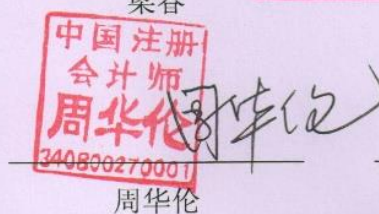 梁春
中国注册
会计师
周华伦
340800270001
周华伦
周华伦